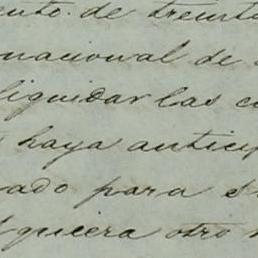 ento. de treinta
nacional de
liquidar las c
haya anticip
ado para s
quiera otro